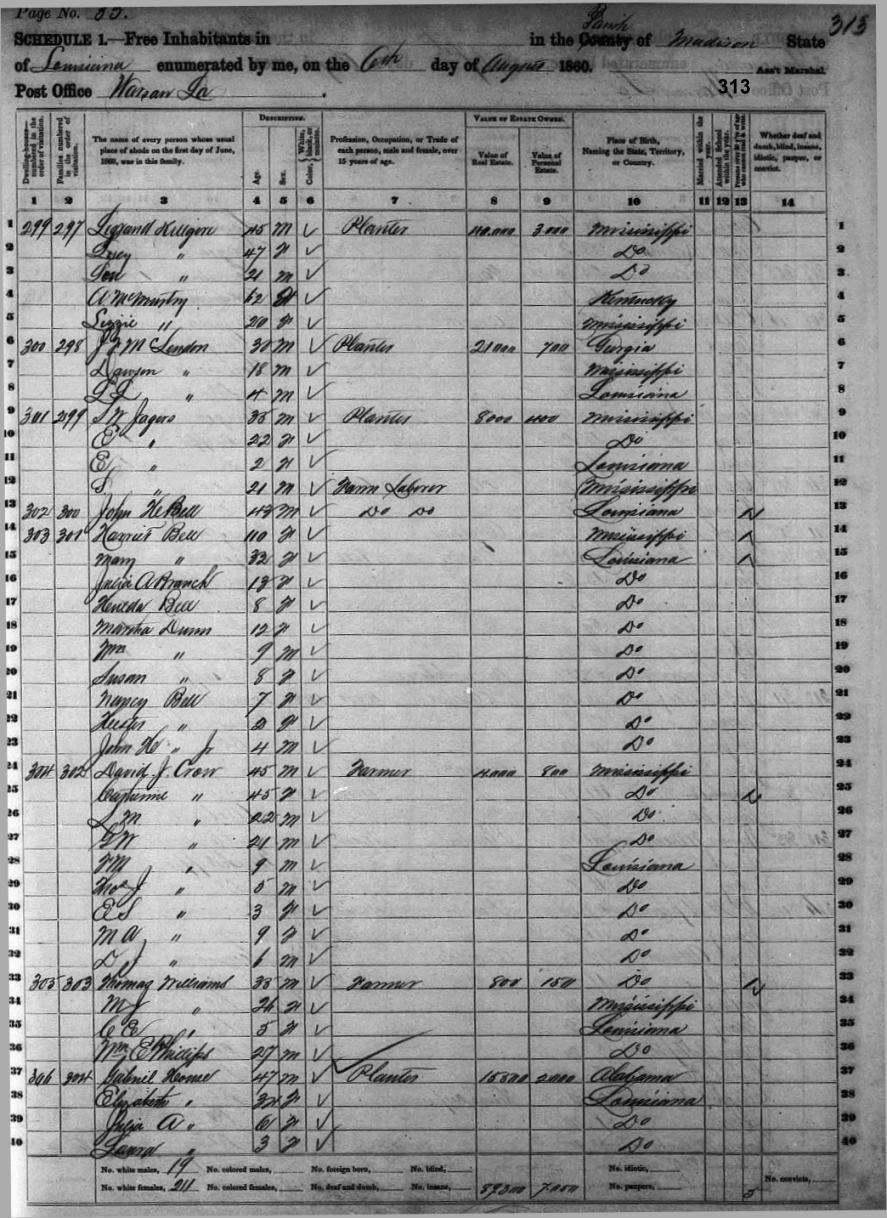 Page No. 33. 313
SCHEDULE 1.—Free Inhabitants in in the County Parish of Madison State
of Louisiana enumerated by me, on the 6th day of August 1860. Ass't Marshal.
Post Office Warsaw La . 313
DESCRIPTION. VALUE OF ESTATE OWNED.
Dwelling-houses— numbered in the order of visitation. Families numbered in the order of visitation. The name of every person whose usual place of abode on the first day of June, 1860, was in this family. Age. Sex. Color, White, black, or mulatto. Profession, Occupation, or Trade of each person, male and female, over 15 years of age. Value of Real Estate. Value of Personal Estate. Place of Birth, Naming the State, Territory, or Country. Married within the year. Attended School within the year. Persons over 20 y'rs of age who cannot read & write. Whether deaf and dumb, blind, insane, idiotic, pauper, or convict.
1 2 3 4 5 6 7 8 9 10 11 12 13 14
1 299 297 Legrand Killgore 45 M ✓ Planter 40,000 3000 Mississippi 1
2 " 47 F ✓ Do 2
3 " 21 M ✓ Do 3
4 A McMurtry 62 ✓ Kentucky 4
5 Lizzie " 20 F ✓ Mississippi 5
6 300 298 McLendon 30 M ✓ Planter 21000 700 Georgia 6
7 Dawson " 18 M ✓ Mississippi 7
8 " 4 M ✓ Louisiana 8
9 301 299 S W Jagers 35 M ✓ Planter 8000 400 Mississippi 9
10 E " 22 F ✓ Do 10
11 E " 2 F ✓ Louisiana 11
12 S " 21 M ✓ Farm Laborer Mississippi 12
13 302 300 John H Bell 43 M ✓ Do Do Louisiana 13
14 303 301 Harriet Bell 40 F ✓ Mississippi 14
15 Mary " 32 F ✓ Louisiana 15
16 Julia A Branch 13 F ✓ Do 16
17 Bell 8 F ✓ Do 17
18 Martha Dunn 12 F ✓ Do 18
19 Wm " 9 M ✓ Do 19
20 Susan " 8 F ✓ Do 20
21 Nancy Bell 7 F ✓ Do 21
22 Hester " 2 F ✓ Do 22
23 John H " Jr 4 M ✓ Do 23
24 304 302 David J. Crow 45 M ✓ Farmer 4000 800 Mississippi 24
25 Catherine " 45 F ✓ Do 25
26 S M " 22 M ✓ Do 26
27 " 21 M ✓ Do 27
28 " 9 M ✓ Louisiana 28
29 Thos J " 5 M ✓ Do 29
30 E S " 3 F ✓ Do 30
31 M A " 9 F ✓ Do 31
32 " 6 M ✓ Do 32
33 305 303 Thomas Williams 33 M ✓ Farmer 800 150 Do 33
34 M J " 26 F ✓ Mississippi 34
35 C E " 5 F ✓ Louisiana 35
36 Wm E Phillips 27 M ✓ Do 36
37 306 304 Gabriel 47 M ✓ Planter 15500 2000 Alabama 37
38 Elizabeth " 34 F ✓ Louisiana 38
39 Julia A " 6 F ✓ Do 39
40 Laura " 3 F ✓ Do 40
No. white males, 19 No. colored males, No. foreign born, No. blind, No. idiotic, No. convicts,
No. white females, 21 No. colored females, No. deaf and dumb, No. insane, 89300 7050 No. paupers, 5